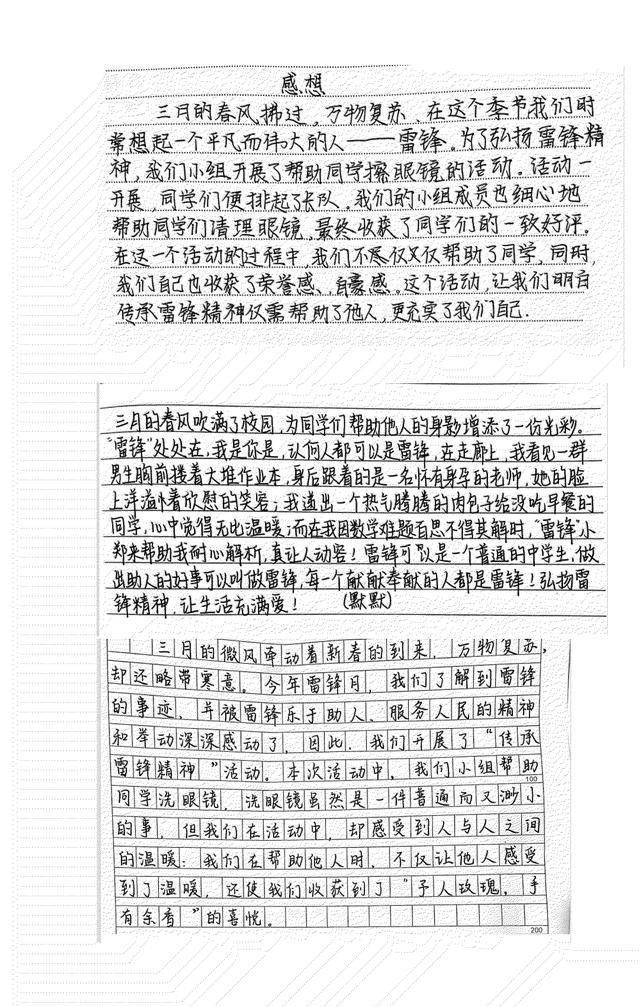 感想
三月的春风拂过，万物复苏、在这个季节我们时
常想起一个平凡而伟大的人——雷锋。为了弘扬雷锋精
神，我们小组开展了帮助同学擦眼镜的活动。活动一
开展，同学们便排起了长队。我们的小组成员也细心地
帮助同学们清理眼镜，最终收获了同学们的一致好评。
在这一个活动的过程中，我们不仅仅帮助了同学，同时，
我们自己也收获了荣誉感、自豪感。这个活动，让我们明白
传承雷锋精神仅需帮助了他人，更充实了我们自己.
三月的春风吹满了校园，为同学们帮助他人的身影增添了一份光彩。
“雷锋”处处在，我是你是，认何人都可以是雷锋，在走廊上，我看见一群
男生胸前搂着大堆作业本，身后跟着的是一名怀有身孕的老师，她的脸
上洋溢着欣慰的笑容；我递出一个热气腾腾的肉包子给没吃早餐的
同学，心中觉得无比温暖；而在我因数学难题百思不得其解时，“雷锋”小
郑来帮助我耐心解析，真让人动容！雷锋可以是一个普通的中学生，做
出助人的好事可以叫做雷锋，每一个献献奉献的人都是雷锋！弘扬雷
锋精神，让生活充满爱！ （默默）
三月的微风牵动着新春的到来，万物复苏，
却还略带寒意。今年雷锋月，我们了解到雷锋
的事迹，并被雷锋乐于助人、服务人民的精神
和举动深深感动了，因此，我们开展了“传承
雷锋精神”活动。本次活动中，我们小组帮助
100
同学洗眼镜，洗眼镜虽然是一件普通而又渺小
的事，但我们在活动中，却感受到人与人之间
的温暖：我们在帮助他人时，不仅让他人感受
到了温暖，还使我们收获到了“予人玫瑰，手
有余香”的喜悦。
200